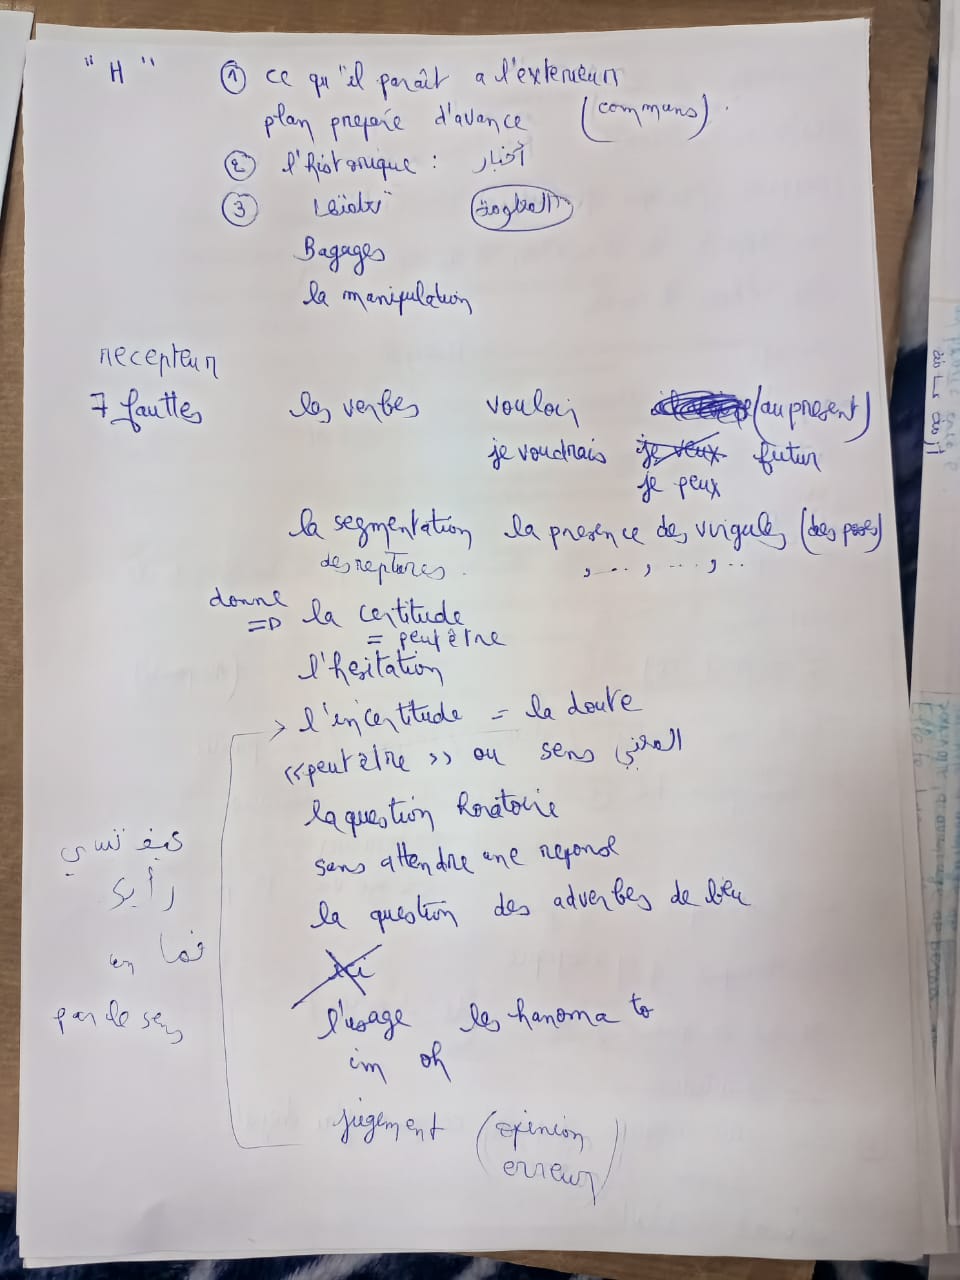 "H" ① ce qu'il paraît a l'exterieur
plan prepare d'avance (communs).
② l'historique : أخبار
③
Bagages
la manipulation
recepteur
7 fauttes les verbes vouloir (au present)
je voudrais je veux futur
je peux
la segmentation la presence de virigules
des reptures. , ... , ... , ..
donne => la certitude
= peut être
l'hesitation
> l'incertitude = la doute
«peut être» ou sens
la question horatoire
sens attendre une reponse
la question des adverbes de lieu
ici
l'usage les hanoma to
im oh
jugement (opinion
erreur)
رأيك
en
par le sens